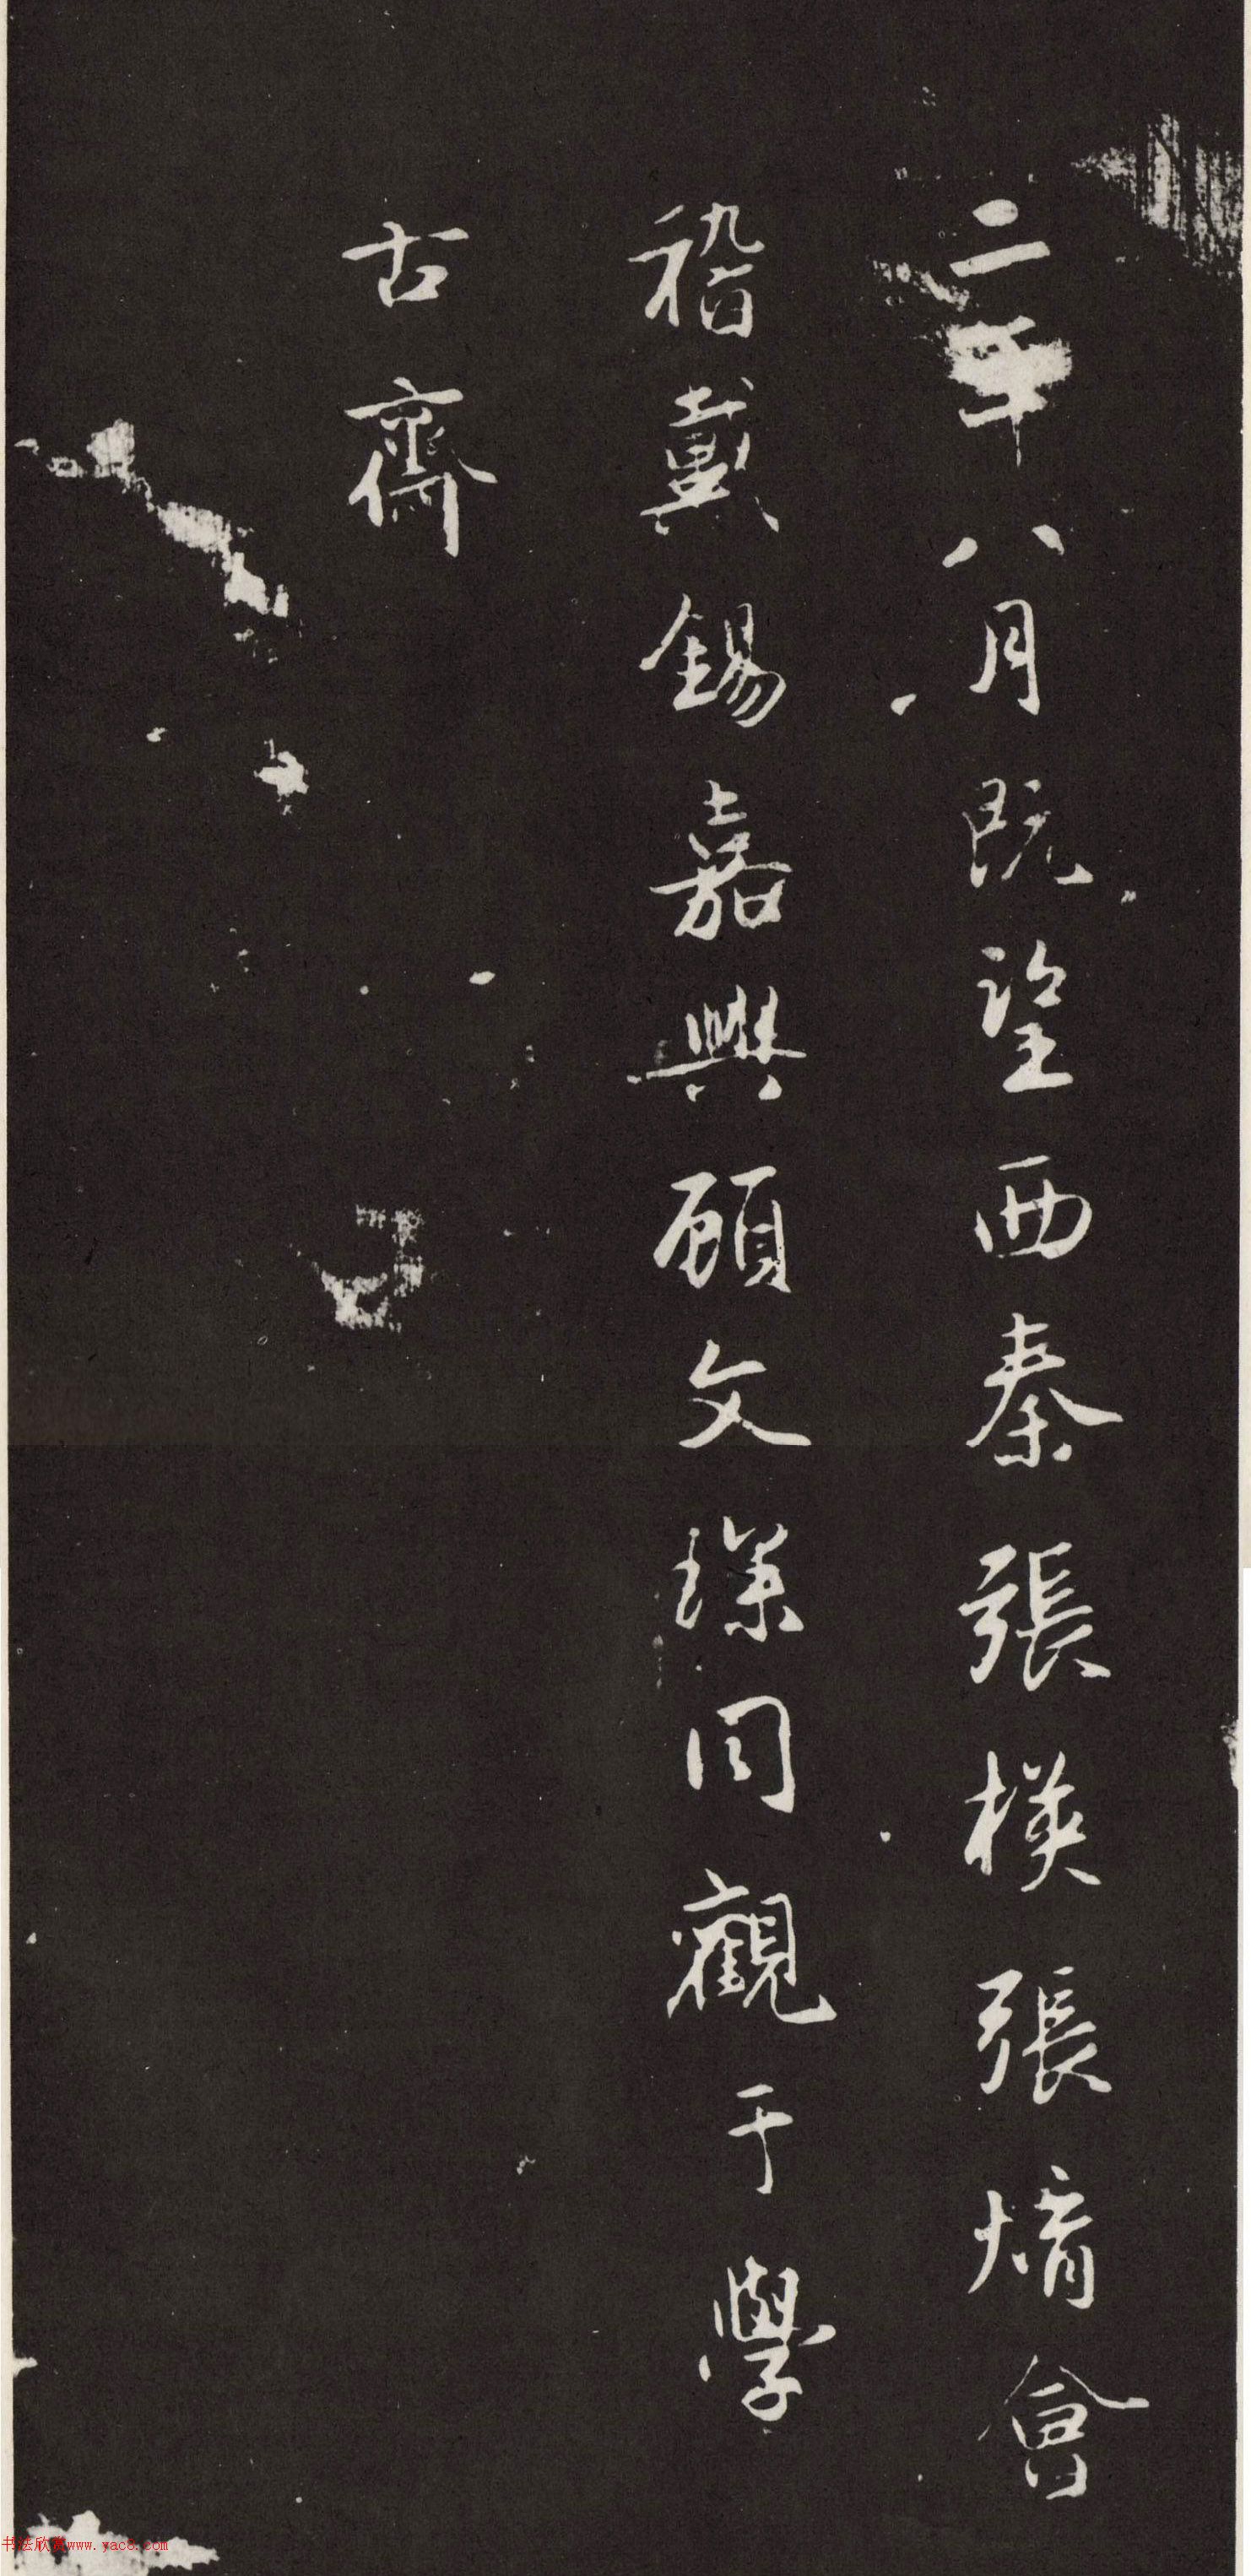 二年八月既望西秦張模張焴會
稽戴錫嘉興顧文琛同觀于學
古齋
书法欣赏www.yac8.com